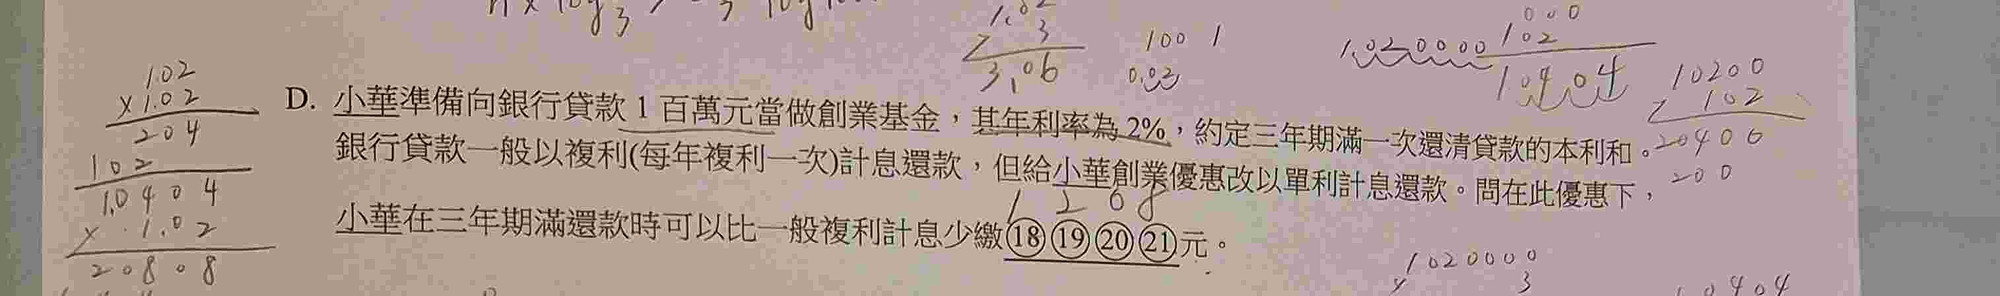 1.02
3
3.06
100 1
0.02
000
1.020000 102
10404
10200
102
20400
200
1.02
×1.02
204
102
1.0404
× 1.02
20808
D. 小華準備向銀行貸款 1 百萬元當做創業基金，其年利率為 2%，約定三年期滿一次還清貸款的本利和。
銀行貸款一般以複利(每年複利一次)計息還款，但給小華創業優惠改以單利計息還款。問在此優惠下，
1 2 0 8
小華在三年期滿還款時可以比一般複利計息少繳⑱⑲⑳㉑元。
1020000
3
10404